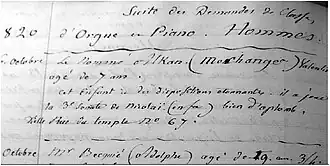 Suite des Demandes de Classe
1820 d'Orgue et Piano. Hommes.
Octobre Le Nommé Alkan (Morhange) Valentin
agé de 7 ans.
cet Enfant a des Dispositions étonnantes. il a joué
la 3e Sonate de Nicolaï (en fa) bien d'aplomb.
Rue du temple No 67.
Octobre Mr Becquié (Adolphe) agé de 19 ans